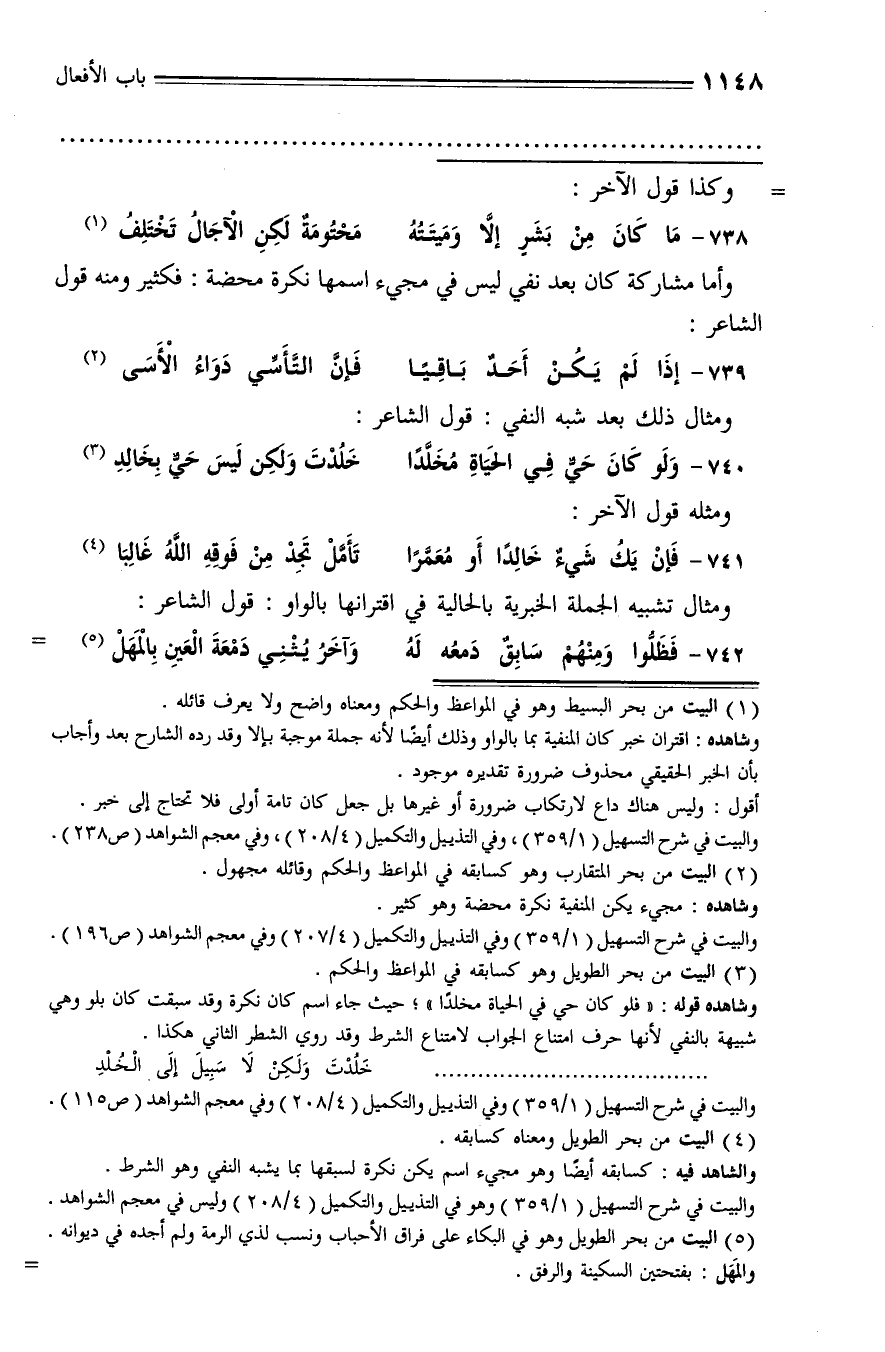 ١١٤٨ باب الأفعال
= وكذا قول الآخر :
٧٣٨- مَا كَانَ مِنْ بَشَرٍ إلَّا وَمَيتَتُهُ مَحْتُومَةٌ لَكِنِ الْآجَالُ تَخْتَلِفُ (١)
وأما مشاركة كان بعد نفي ليس في مجيء اسمها نكرة محضة : فكثير ومنه قول
الشاعر :
٧٣٩- إذَا لَمْ يَكُنْ أَحَدٌ بَاقِيًا فَإنَّ التَّأَسِّي دَوَاءُ الْأَسَى (٢)
ومثال ذلك بعد شبه النفي : قول الشاعر :
٧٤٠- وَلَو كَانَ حَيٌّ فِي الحَيَاةِ مُخَلَّدًا خَلُدْتَ وَلَكِن لَيسَ حَيٌّ بِخَالِدِ (٣)
ومثله قول الآخر :
٧٤١- فَإنْ يَكُ شَيءٌ خَالِدًا أَو مُعَمَّرًا تَأَمَّلْ تَجِدْ مِنْ فَوقِهِ اللَّهُ غَالِبَا (٤)
ومثال تشبيه الجملة الخبرية بالحالية في اقترانها بالواو : قول الشاعر :
٧٤٢- فَظَلُّوا وَمِنْهُمْ سَابِقٌ دَمعُه لَهُ وَآخَرُ يُثْنِي دَمْعَةَ الْعَينِ بِالْمَهَلْ (٥) =
(١) البيت من بحر البسيط وهو في المواعظ والحكم ومعناه واضح ولا يعرف قائله .
وشاهده : اقتران خبر كان المنفية بما بالواو وذلك أيضًا لأنه جملة موجبة بإلا وقد رده الشارح بعد وأجاب
بأن الخبر الحقيقي محذوف ضرورة تقديره موجود .
أقول : وليس هناك داع لارتكاب ضرورة أو غيرها بل جعل كان تامة أولى فلا تحتاج إلى خبر .
والبيت في شرح التسهيل ( ٣٥٩/١ ) ، وفي التذييل والتكميل ( ٢٠٨/٤ ) ، وفي معجم الشواهد ( ص٢٣٨ ) .
(٢) البيت من بحر المتقارب وهو كسابقه في المواعظ والحكم وقائله مجهول .
وشاهده : مجيء يكن المنفية نكرة محضة وهو كثير .
والبيت في شرح التسهيل ( ٣٥٩/١ ) وفي التذييل والتكميل ( ٢٠٧/٤ ) وفي معجم الشواهد ( ص١٩٦ ) .
(٣) البيت من بحر الطويل وهو كسابقه في المواعظ والحكم .
وشاهده قوله : « فلو كان حي في الحياة مخلدًا » ؛ حيث جاء اسم كان نكرة وقد سبقت كان بلو وهي
شبيهة بالنفي لأنها حرف امتناع الجواب لامتناع الشرط وقد روي الشطر الثاني هكذا .
...................................... خَلُدْتَ وَلَكِنْ لَا سَبِيلَ إلَى الْخُلْدِ
والبيت في شرح التسهيل ( ٣٥٩/١ ) وفي التذييل والتكميل ( ٢٠٨/٤ ) وفي معجم الشواهد ( ص١١٥ ) .
(٤) البيت من بحر الطويل ومعناه كسابقه .
والشاهد فيه : كسابقه أيضًا وهو مجيء اسم يكن نكرة لسبقها بما يشبه النفي وهو الشرط .
والبيت في شرح التسهيل ( ٣٥٩/١ ) وهو في التذييل والتكميل ( ٢٠٨/٤ ) وليس في معجم الشواهد .
(٥) البيت من بحر الطويل وهو في البكاء على فراق الأحباب ونسب لذي الرمة ولم أجده في ديوانه .
والمَهَل : بفتحتين السكينة والرفق . =